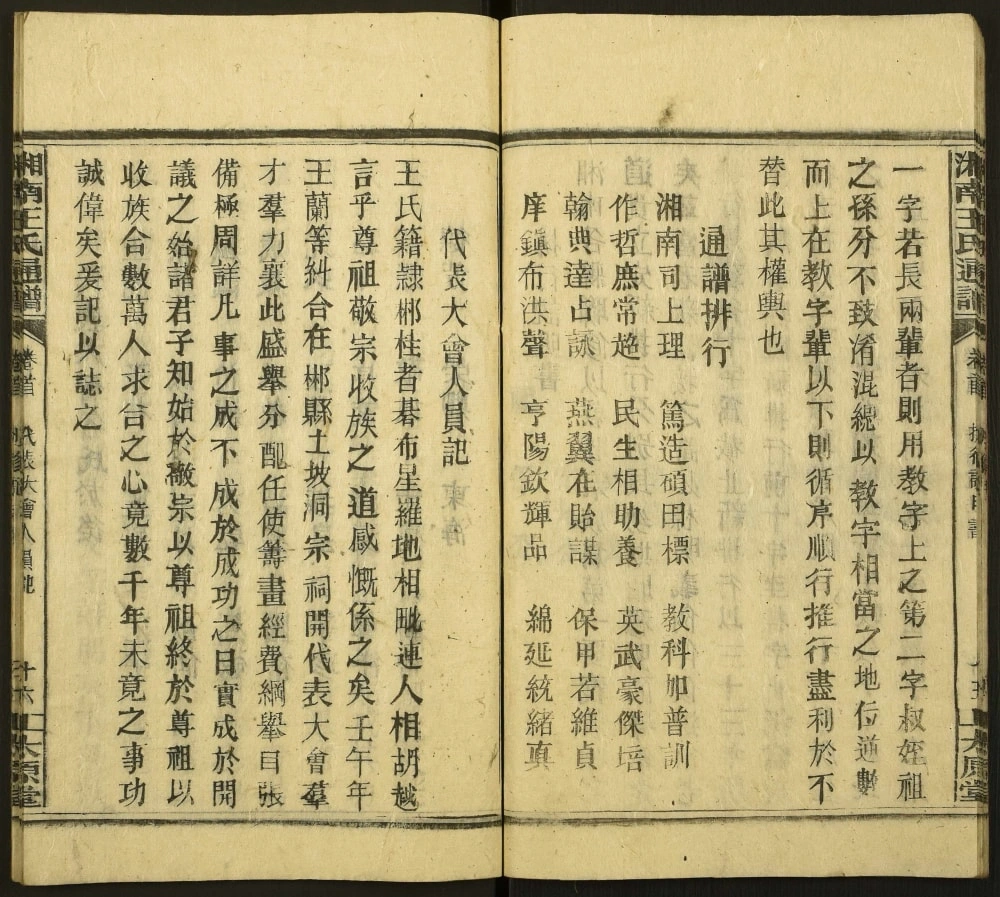 一字若長兩輩者則用教字上之第二字叔姪祖
之孫分不致淆混總以教字相當之地位逆數
而上在教字輩以下則循序順行推行盡利於不
替此其權輿也
通譜排行
湘南司上理 篤造碩田標 教科如普訓
作哲庶常逖 民生相助養 英武豪傑培
翰典達占詠 燕翼在貽謀 保甲若維貞
庠鎮布洪聲 亨陽欽輝品 綿延統緒真
代表大會人員記
王氏籍隸郴桂者碁布星羅地相毗連人相胡越
言乎尊祖敬宗收族之道感慨係之矣壬午年
王蘭等糾合在郴縣土坡洞宗祠開代表大會羣
才羣力襄此盛舉分配任使籌畫經費綱舉目張
備極周詳凡事之成不成於成功之日實成於開
議之始諸君子知始於敬宗以尊祖終於尊祖以
收族合數萬人求合之心竟數千年未竟之事功
誠偉矣爰記以誌之
湘南王氏通譜 卷首 代表大會人員記 十六 太原堂